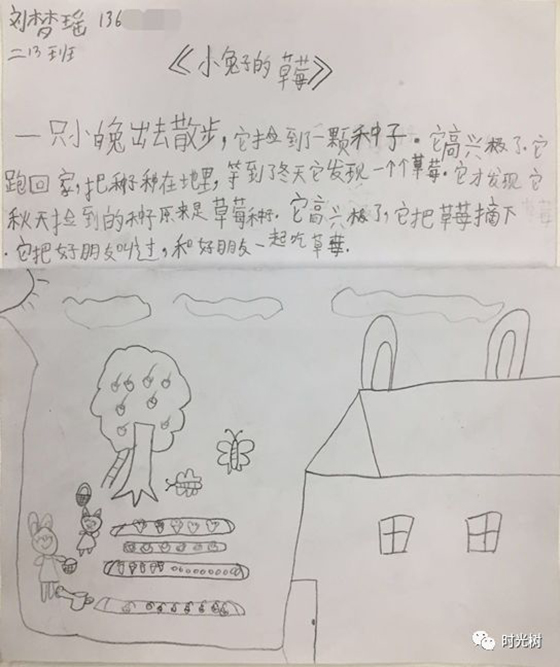 刘梦瑶 136
二13班
《小兔子的草莓》
一只小晚出去散步,它捡到了一颗种子.它高兴极了.它
跑回家,把种子种在地里,等到了冬天它发现一个个草莓.它才发现它
秋天捡到的种子原来是草莓种.它高兴极了,它把草莓摘下
.它把好朋友叫过,和好朋友一起吃草莓.
时光树